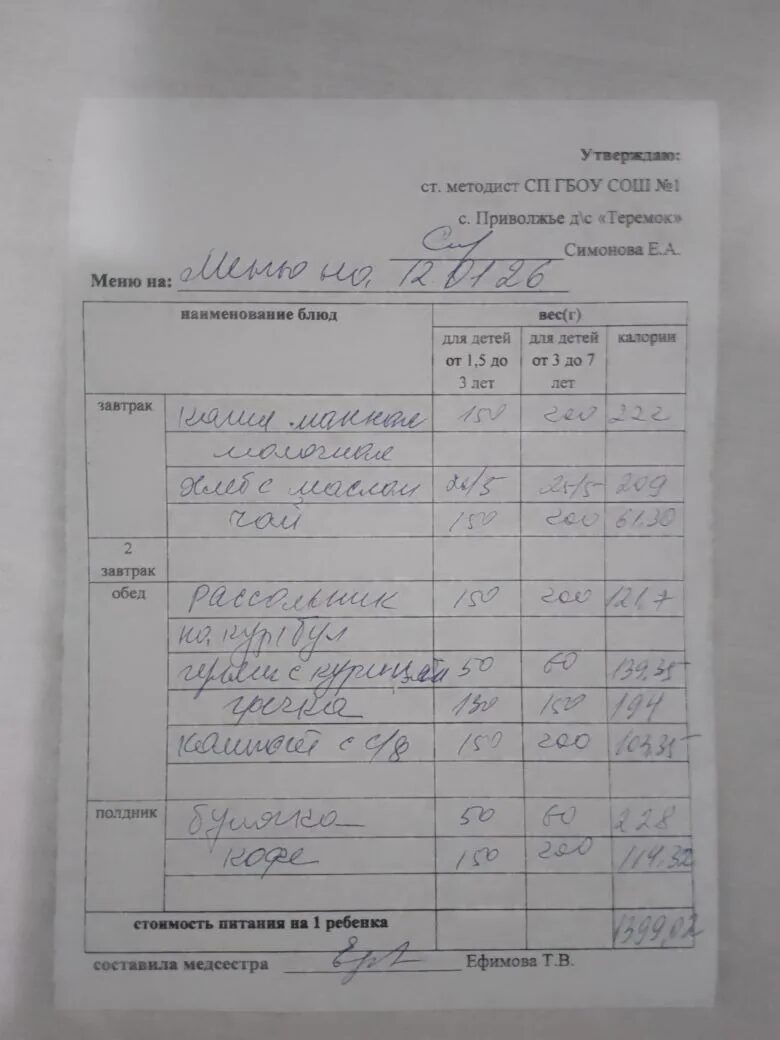 Утверждаю:
ст. методист СП ГБОУ СОШ №1
с. Приволжье д\с «Теремок»
Симонова Е.А.
Меню на: Меню на 12 01 26
наименование блюд вес(г)
для детей от 1,5 до 3 лет для детей от 3 до 7 лет калории
завтрак каша манная 150 200 222
молочная
хлеб с маслом 25/5 25/5 209
чай 150 200 61.30
2 завтрак
обед рассольник 150 200 121,7
на кур бул
с курицей 50 60 139.35
гречка 130 150 194
компот с с/ф 150 200 109,35
полдник булочка 50 60 228
кофе 150 200 114.32
стоимость питания на 1 ребенка 1399,02
составила медсестра Ефимова Т.В.